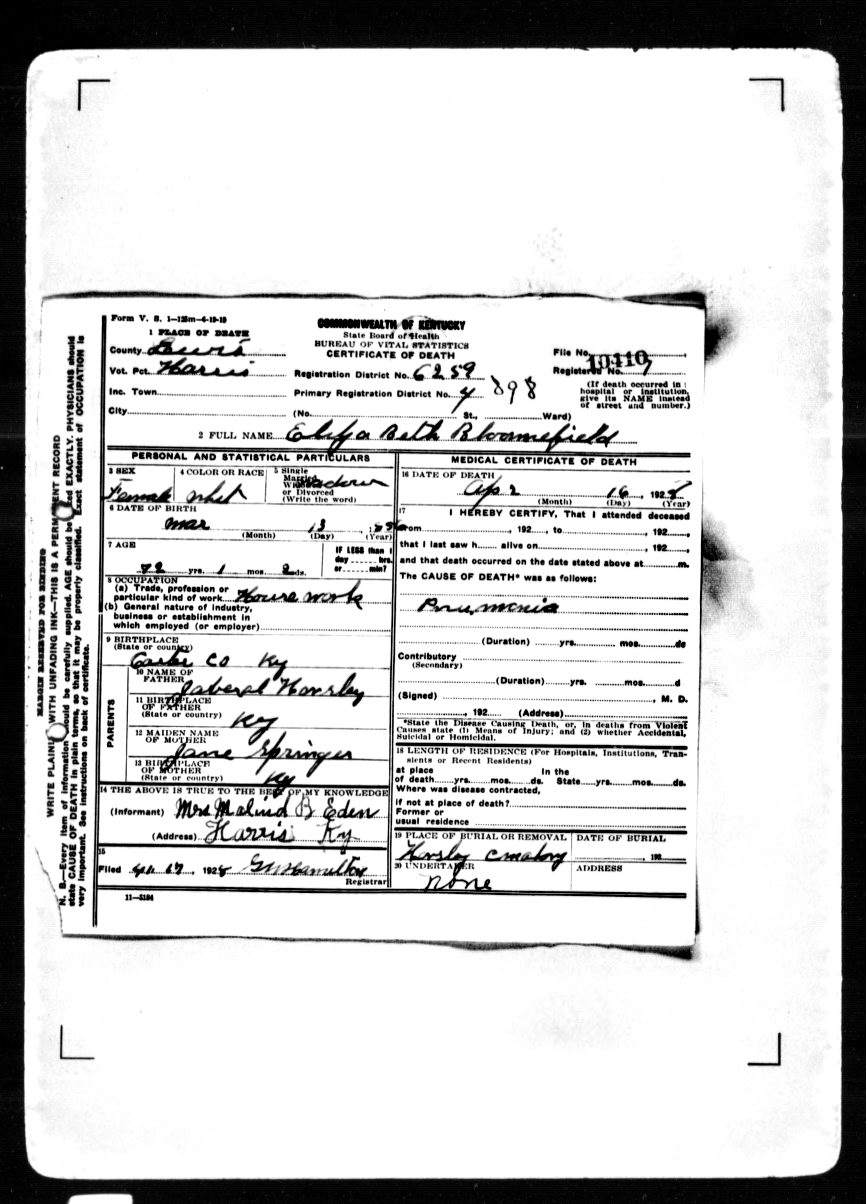 MARGIN RESERVED FOR BINDING
WRITE PLAINLY WITH UNFADING INK—THIS IS A PERMANENT RECORD
N. B.—Every item of information should be carefully supplied. AGE should be stated EXACTLY. PHYSICIANS should
state CAUSE OF DEATH in plain terms, so that it may be properly classified. Exact statement of OCCUPATION is
very important. See instructions on back of certificate.
Form V. S. 1—125m—6-19-19
COMMONWEALTH OF KENTUCKY
State Board of Health
BUREAU OF VITAL STATISTICS
CERTIFICATE OF DEATH
1 PLACE OF DEATH
County Lewis
Vot. Pct. Harris
Inc. Town
City
Registration District No. 6259
Primary Registration District No. 4 898
(No. St., Ward)
File No. 10410
Registered No. 7
(If death occurred in a
hospital or institution,
give its NAME instead
of street and number.)
2 FULL NAME Eliza Beth Bloomefield
PERSONAL AND STATISTICAL PARTICULARS
3 SEX Female
4 COLOR OR RACE whit
5 Single
Married
Widowed
or Divorced
(Write the word)
Widow
6 DATE OF BIRTH
mar 13
(Month) (Day) (Year)
7 AGE
72 yrs. 1 mos. 2 ds.
IF LESS than 1
day hrs.
or min?
8 OCCUPATION
(a) Trade, profession or
particular kind of work House work
(b) General nature of industry,
business or establishment in
which employed (or employer)
9 BIRTHPLACE
(State or country)
Carter co Ky
PARENTS
10 NAME OF
FATHER
Horsley
11 BIRTHPLACE
OF FATHER
(State or country) Ky
12 MAIDEN NAME
OF MOTHER
Jane Springer
13 BIRTHPLACE
OF MOTHER
(State or country) Ky
14 THE ABOVE IS TRUE TO THE BEST OF MY KNOWLEDGE
(Informant) Mrs Malind B Eden
(Address) Harris Ky
15
Filed 17, 1928 GW Hamilton
Registrar
11—5184
MEDICAL CERTIFICATE OF DEATH
16 DATE OF DEATH
Apr 16, 1928
(Month) (Day) (Year)
17 I HEREBY CERTIFY, That I attended deceased
from , 192 , to , 192 ,
that I last saw h alive on , 192 ,
and that death occurred on the date stated above at m.
The CAUSE OF DEATH* was as follows:
Pnumonia
(Duration) yrs. mos. ds
Contributory
(Secondary)
(Duration) yrs. mos. d
(Signed) , M. D.
, 192 (Address)
*State the Disease Causing Death, or, in deaths from Violent
Causes state (1) Means of Injury; and (2) whether Accidental,
Suicidal or Homicidal.
18 LENGTH OF RESIDENCE (For Hospitals, Institutions, Tran-
sients or Recent Residents)
at place In the
of death yrs. mos. ds. State yrs. mos. ds.
Where was disease contracted,
if not at place of death?
Former or
usual residence
19 PLACE OF BURIAL OR REMOVAL DATE OF BURIAL
Horsley , 192
20 UNDERTAKER ADDRESS
none